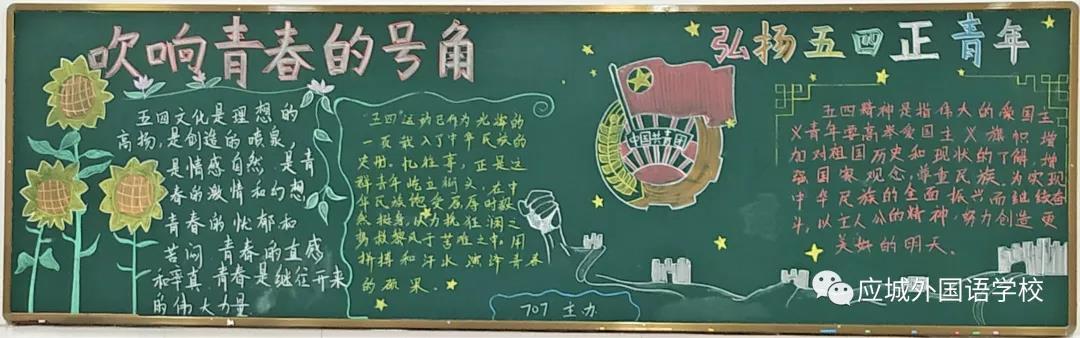 吹响青春的号角
五四文化是理想的
高扬,是创造的喷泉,
是情感自然.是青
春的激情和幻想
青春的忧郁和
苦闷 青春的直感
和率真 青春是继往开来
的伟大力量
"五四"运动已作为光辉的
一页载入了中华民族的
史册.忆往事,正是这
群青年屹立街头,在中
华民族饱受屈辱时毅
然挺身,以力挽狂澜之
势救黎民于苦难之中.用
拼搏和汗水 演绎青春
的硕果.
707 主办
弘扬五四正青年
中国共青团
五四精神是指伟大的爱国主
义青年要高举爱国主义旗帜 增
加对祖国历史和现状的了解,增
强国家观念,尊重民族.为实现
中华民族的全面振兴而组织奋
斗,以主人公的精神,努力创造更
美好的明天.
应城外国语学校